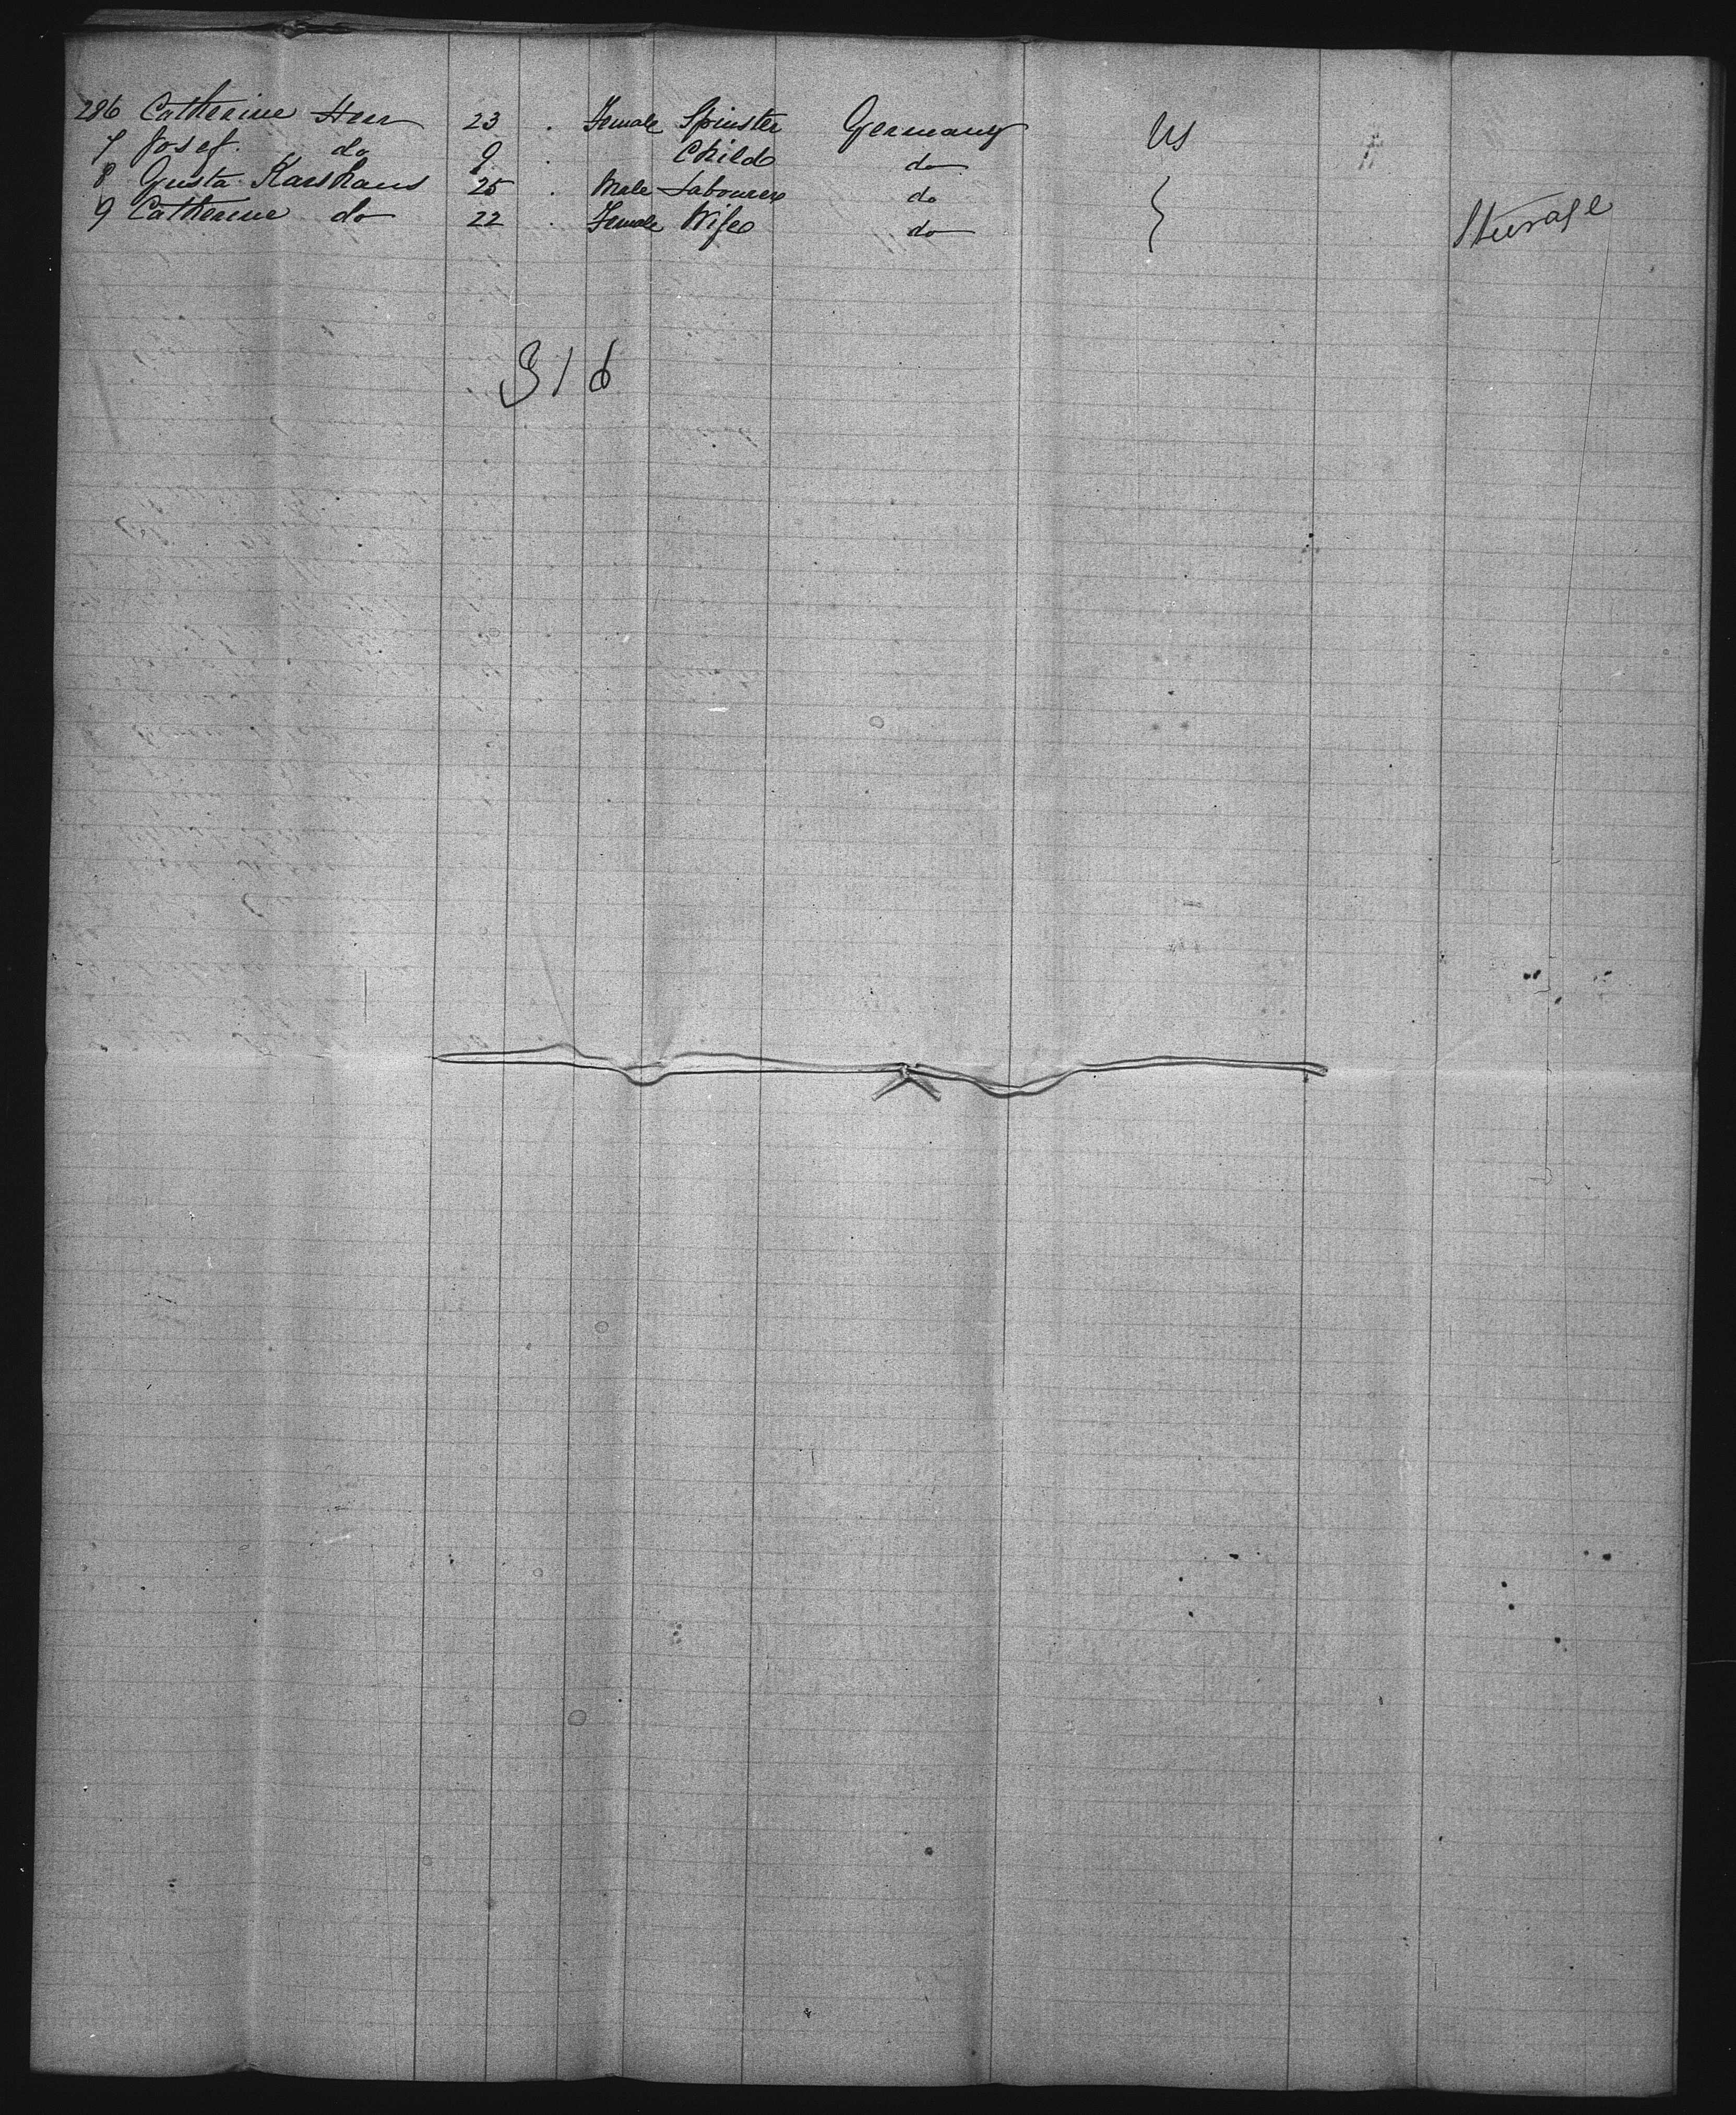 286 Catherine Herr 23 . Female Spinster Germany US
7 Josef do 9 . Child do
8 Gusta Karshaus 25 . Male Labourer do
9 Catherine do 22 . Female Wife do Steerage
316